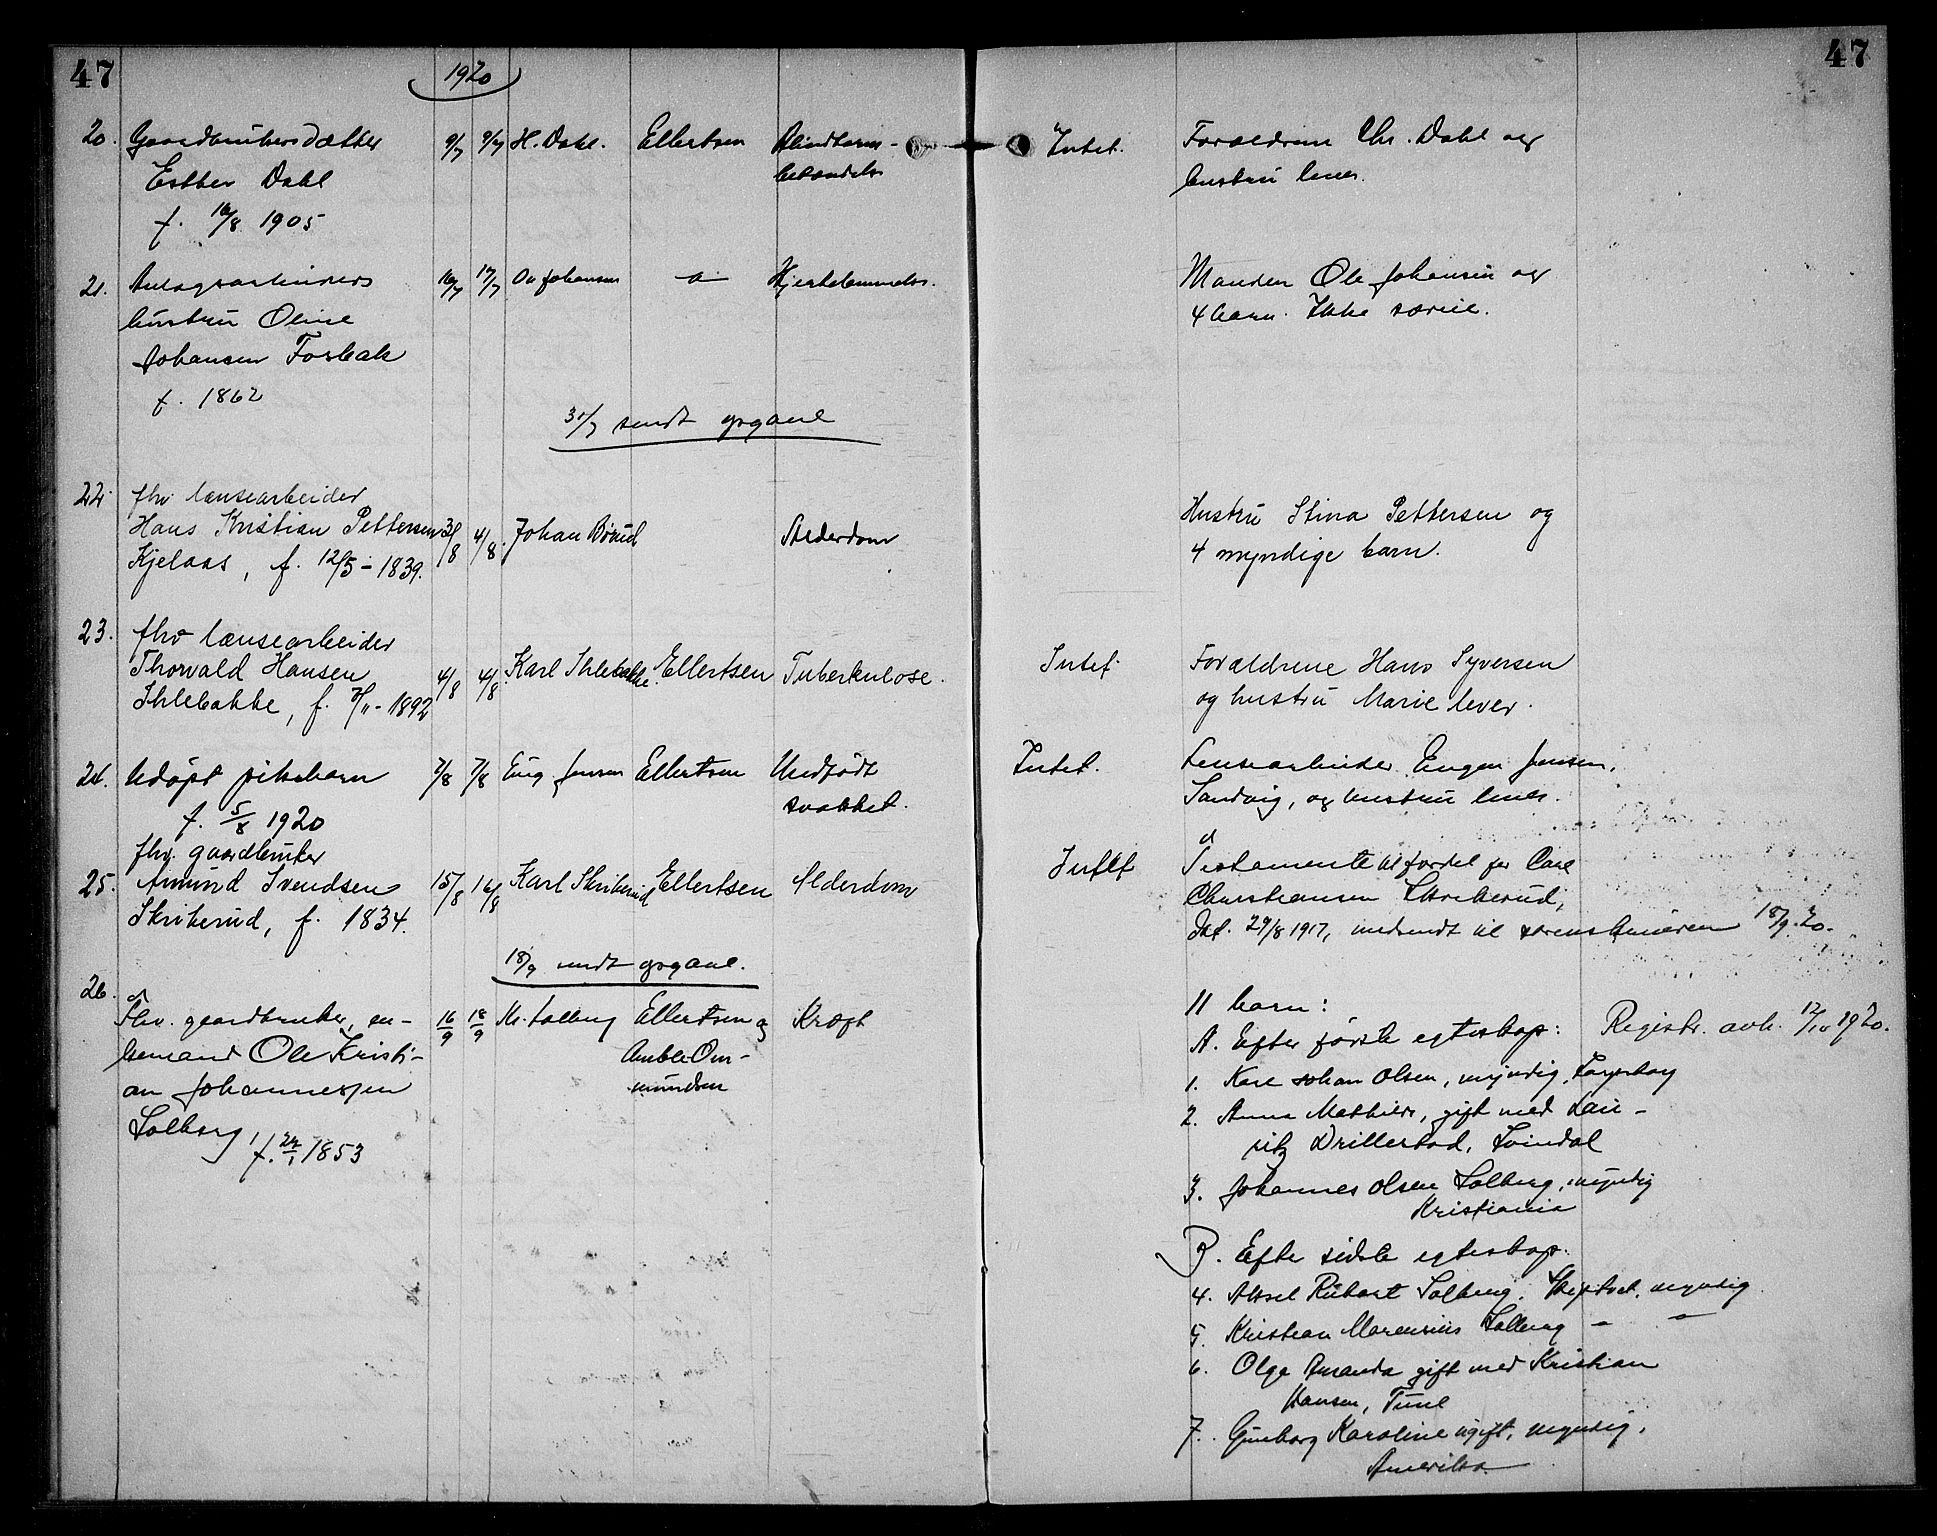 47
1920
47
20. Gaardbrukersdatter 9/7 9/7 H. Dahl. Ellertsen Blindtarm-
Esther Dahl betændelse
f. 16/8 1905
Intet. Forældrene Chr. Dahl og
hustru lever.
21. Anlægsarbeiders 16/7 17/7 Ole Johansen Hjertelammelse.
hustru Oline
Johansen Forbak
f. 1862
Manden Ole Johansen og
4 barn. Ikke særeie.
31/7 sendt opgave
22. fhv. lænsearbeider
Hans Kristian Pettersen 3/8 4/8. Johan Børud Alderdom
Kjelaas, f. 12/5-1839.
Hustru Stina Pettersen og
4 myndige barn.
23. fhv lænsearbeider
Thorvald Hansen 4/8 4/8 Karl Ihlebakke Ellertsen Tuberkulose.
Ihlebakke, f. 7/11-1892
Intet Forældrene Hans Syversen
og hustru Marie lever.
24. Udøpt pikebarn 7/8 7/8 Eug. Jensen Ellertsen Medfødt
f. 5/8 1920 svakhet.
Intet. Lensearbeider Eugen Jensen,
Sandvig, og hustru lever.
fhv. gaardbruker
25. Amund Svendsen 15/8 16/8 Karl Skriberud Ellertsen Alderdom
Skriberud, f. 1834.
Intet Testamente til fordel for Carl
Christiansen Skriberud,
Dat. 29/8 1917, indsendt til sorenskriveren 18/9.20.
18/9 sendt opgave.
26.
Fhv. gaardbruker, en- 16/9 18/9 Kr. Solberg Ellertsen og Kræft
kemand Ole Kristi- Amble Om-
an Johannessen mundsen
Solberg,
f. 24/1 1853
11 barn:
A. Efter første egteskap: Registr. avh. 12/10 1920.
1. Kare Johan Olsen, myndig,
2. Anna Mathilde, gift med Lau-
ritz Drillestad, Svindal
3. Johannes Olsen Solberg, myndig
Kristiania
B. Efter sidste egteskap.
4. Aksel Robert Solberg. Skiptvet, myndig
5. Kristian Marensius Solberg - -
6. Olga Amanda gift med Kristian
Hansen, Tune
7. Gunborg Karoline ugift, myndig,
Amerika